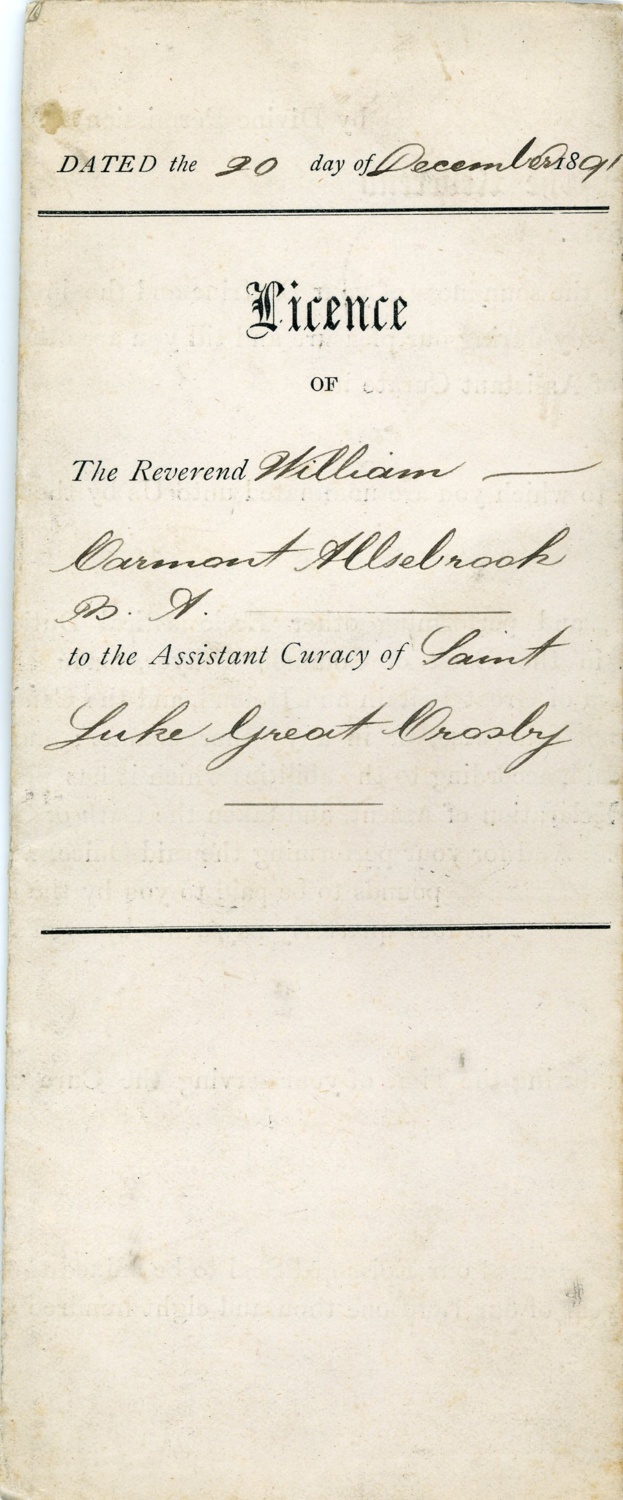 DATED the 20 day of December 1891
Licence
OF
The Reverend William —
Carmont Allsebrook
B. A.
to the Assistant Curacy of Saint
Luke Great Crosby